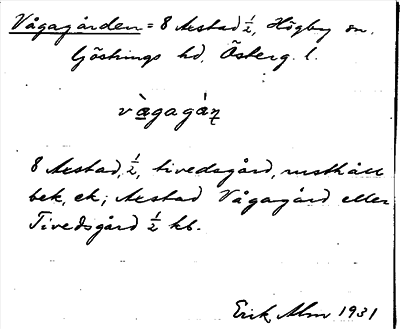 Vågagården = 8 Aestad 1/2, Högby sn.
Göstrings hd, Österg. l.
vå̀gagàɳ
8 Aestad, 1/2, tivedsgård, rusthåll
bek. ek; Aestad Vågagård eller
Tivedsgård 1/2 kb.
Erik Alm 1931